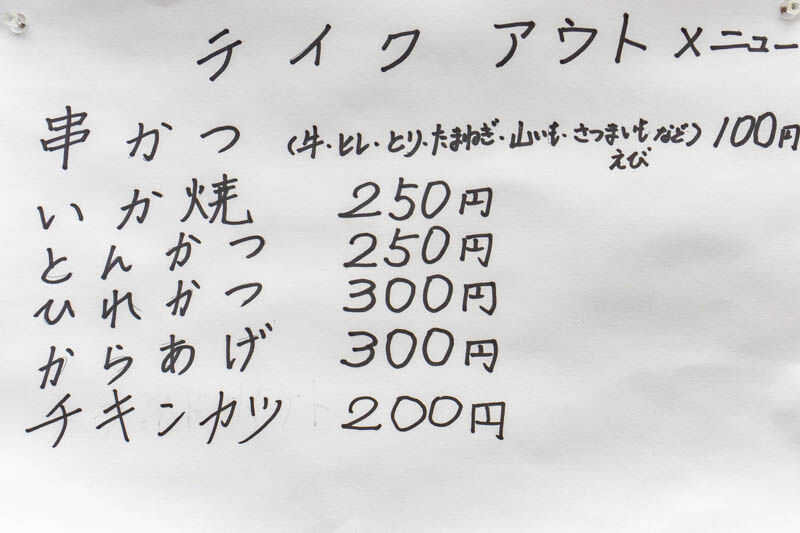 テイク アウト メニュー
串かつ (牛・ヒレ・とり・たまねぎ・山いも・さつまいもなど) 100円
えび
いか焼 250円
とんかつ 250円
ひれかつ 300円
からあげ 300円
チキンカツ 200円